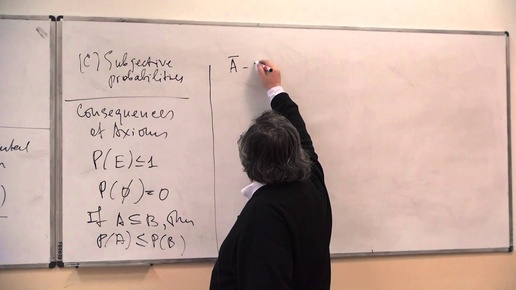 (C) Subjective
probabilities
Consequences
of Axioms
P(E)≤1
P(∅)=0
If A⊆B, then
P(A)≤P(B)
Ā -